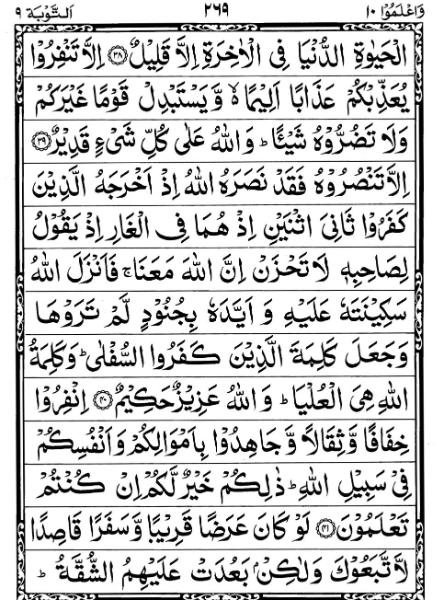 وَاعْلَمُوْٓا ١٠ ٢٦٩ اَلتَّوْبَة ٩
الْحَيٰوةِ الدُّنْيَا فِى الْاٰخِرَةِ اِلَّا قَلِيْلٌ ﴿٣٨﴾ اِلَّا تَنْفِرُوْا
يُعَذِّبْكُمْ عَذَابًا اَلِيْمًا ۙ وَّيَسْتَبْدِلْ قَوْمًا غَيْرَكُمْ
وَلَا تَضُرُّوْهُ شَيْـًٔا ؕ وَاللّٰهُ عَلٰى كُلِّ شَىْءٍ قَدِيْرٌ ﴿٣٩﴾
اِلَّا تَنْصُرُوْهُ فَقَدْ نَصَرَهُ اللّٰهُ اِذْ اَخْرَجَهُ الَّذِيْنَ
كَفَرُوْا ثَانِىَ اثْنَيْنِ اِذْ هُمَا فِى الْغَارِ اِذْ يَقُوْلُ
لِصَاحِبِهٖ لَا تَحْزَنْ اِنَّ اللّٰهَ مَعَنَا ۚ فَاَنْزَلَ اللّٰهُ
سَكِيْنَتَهٗ عَلَيْهِ وَ اَيَّدَهٗ بِجُنُوْدٍ لَّمْ تَرَوْهَا
وَجَعَلَ كَلِمَةَ الَّذِيْنَ كَفَرُوا السُّفْلٰى ؕ وَكَلِمَةُ
اللّٰهِ هِىَ الْعُلْيَا ؕ وَاللّٰهُ عَزِيْزٌ حَكِيْمٌ ﴿٤٠﴾ اِنْفِرُوْا
خِفَافًا وَّثِقَالًا وَّجَاهِدُوْا بِاَمْوَالِكُمْ وَاَنْفُسِكُمْ
فِىْ سَبِيْلِ اللّٰهِ ؕ ذٰلِكُمْ خَيْرٌ لَّكُمْ اِنْ كُنْتُمْ
تَعْلَمُوْنَ ﴿٤١﴾ لَوْ كَانَ عَرَضًا قَرِيْبًا وَّسَفَرًا قَاصِدًا
لَّاتَّبَعُوْكَ وَلٰكِنْۢ بَعُدَتْ عَلَيْهِمُ الشُّقَّةُ ؕ